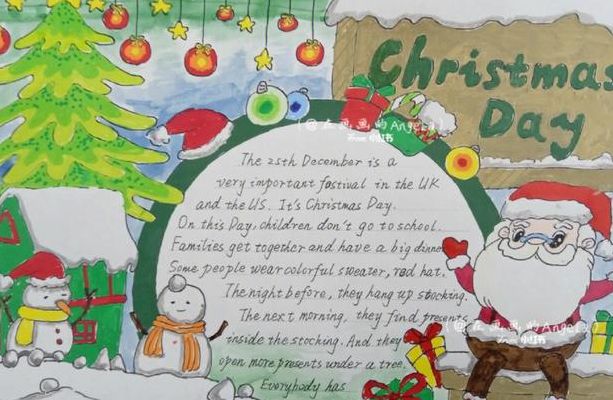 Christmas
Day
(@在画画的Angela)
小红书
The 25th December is a
very important fastival in the UK
and the US. It's Christmas Day.
On this Day, children don't go to school.
Families get together and have a big dinner
Some people wear colorful sweater, rad hat.
The night before, they hang up stocking.
The next morning, they find presents
inside the stocking. And they
open more presents under a tree.
Everybody has
(@在画画的Angela)
小红书